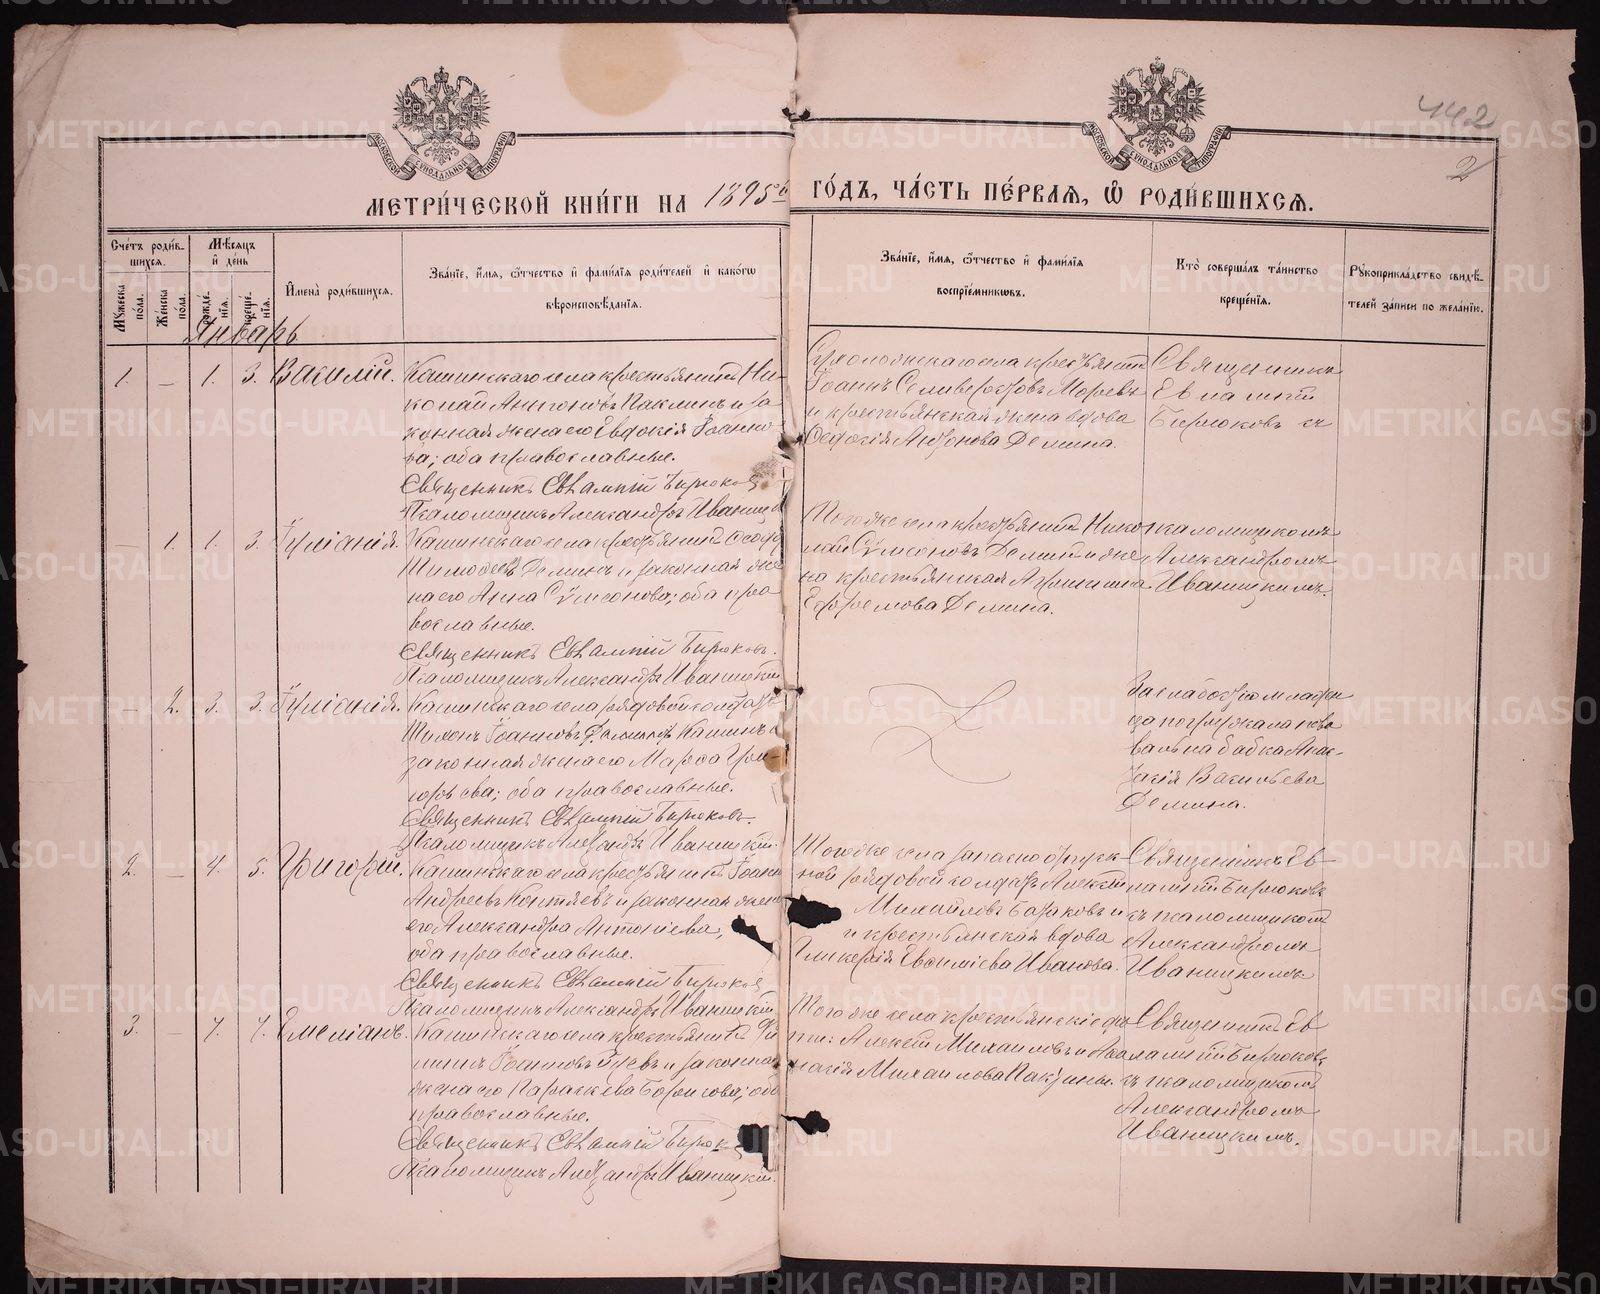 442
2
МОСКОВСКОЙ СѴНОДАЛЬНОЙ ТИПОГРАФІИ
МОСКОВСКОЙ СѴНОДАЛЬНОЙ ТИПОГРАФІИ
МЕТРИ́ЧЕСКОЙ КНИ́ГИ НА 1895й ГО́ДЪ, ЧА́СТЬ ПЕ́РВАѦ, Ѿ РОДИ́ВШИХСѦ.
Сче́тъ роди́в-
шихсѧ.
Мꙋжеска по́ла.
Же́нска по́ла.
Мѣ́сѧцъ
и҆ де́нь
рожде́-
нїѧ.
креще́-
нїѧ.
И҆мена̀ роди́вшихсѧ.
Зва́нїе, и҆́мѧ, ѻ҆́тчество и҆ фами́лїѧ роди́телей и҆ како́гѡ
вѣроисповѣ́данїѧ.
Зва́нїе, и҆́мѧ, ѻ҆́тчество и҆ фами́лїѧ
воспрїе́мникѡвъ.
Кто̀ соверша́лъ та́инство
креще́нїѧ.
Рꙋкоприкла́дство свидѣ́-
телей за́писи по жела́нїю.
Январь
1. – 1. 3. Василій.
Кашинскаго села крестьянинъ Ни-
колай Антоновъ Паклинъ и за-
конная жена его Евдокія Іоанно-
ва; оба православные.
Священникъ Евлампій Бирюковъ
Псаломщикъ Александръ Иваницкій
Сухоложскаго села крестьянинъ
Іоаннъ Селиверстовъ
и крестьянская жена вдова
Антонова Демина.
Священникъ
Евлампій
Бирюковъ съ
– 1. 1. 3. Іуліанія.
Кашинскаго села крестьянинъ
Тимофеевъ Деминъ и законная же-
на его Анна Сѵмеонова; оба пра-
вославные.
Священникъ Евлампій Бирюковъ.
Псаломщикъ Александръ Иваницкій
Тогоже села крестьянинъ Нико-
лай Сѵмеоновъ Деминъ и же-
на крестьянская Агриппина
Ефремова Демина.
псаломщикомъ
Александромъ
Иваницкимъ.
– 2. 3. 3. Іуліанія.
Кашинскаго села рядовой солдатъ
Тихонъ Іоанновъ Кашинъ и
законная жена его Марфа Григ-
горьева; оба православные.
Священникъ Евлампій Бирюковъ.
Псаломщикъ Александръ Иваницкій.
За слабостію младен-
ца погружала повив-
альна бабка Анас-
тасія Васильева
Демина.
2. – 4. 5. Григорій.
Кашинскаго села крестьянинъ Іоаннъ
Андреевъ Коптяевъ и законная жена
его Александра Антоніева,
оба православные.
Священникъ Евлампій Бирюковъ
Псаломщикъ Александръ Иваницкій.
Тогоже села запасно отпуск-
ной рядовой солдатъ Алексій
Михайловъ Базаковъ и
и крестьянская вдова
Гликерія Евѳиміева Иванова.
Священникъ Ев-
лампій Бирюковъ
съ псаломщикомъ
Александромъ
Иваницкимъ.
3. – 7. 7. Емеліанъ.
Кашинскаго села крестьянинъ Фи-
липпъ Іоанновъ Гусевъ и законная
жена его Параскева Борисова; оба
православные.
Священникъ Евлампій Бирюковъ
Псаломщикъ Александръ Иваницкій.
Тогоже села крестьянскіе де-
ти: Алексій Михаиловъ и Аѳа-
насія Михаилова
Священникъ Ев-
лампій Бирюковъ
съ псаломщикомъ
Александромъ
Иваницкимъ.
METRIKI.GASO-URAL.RU